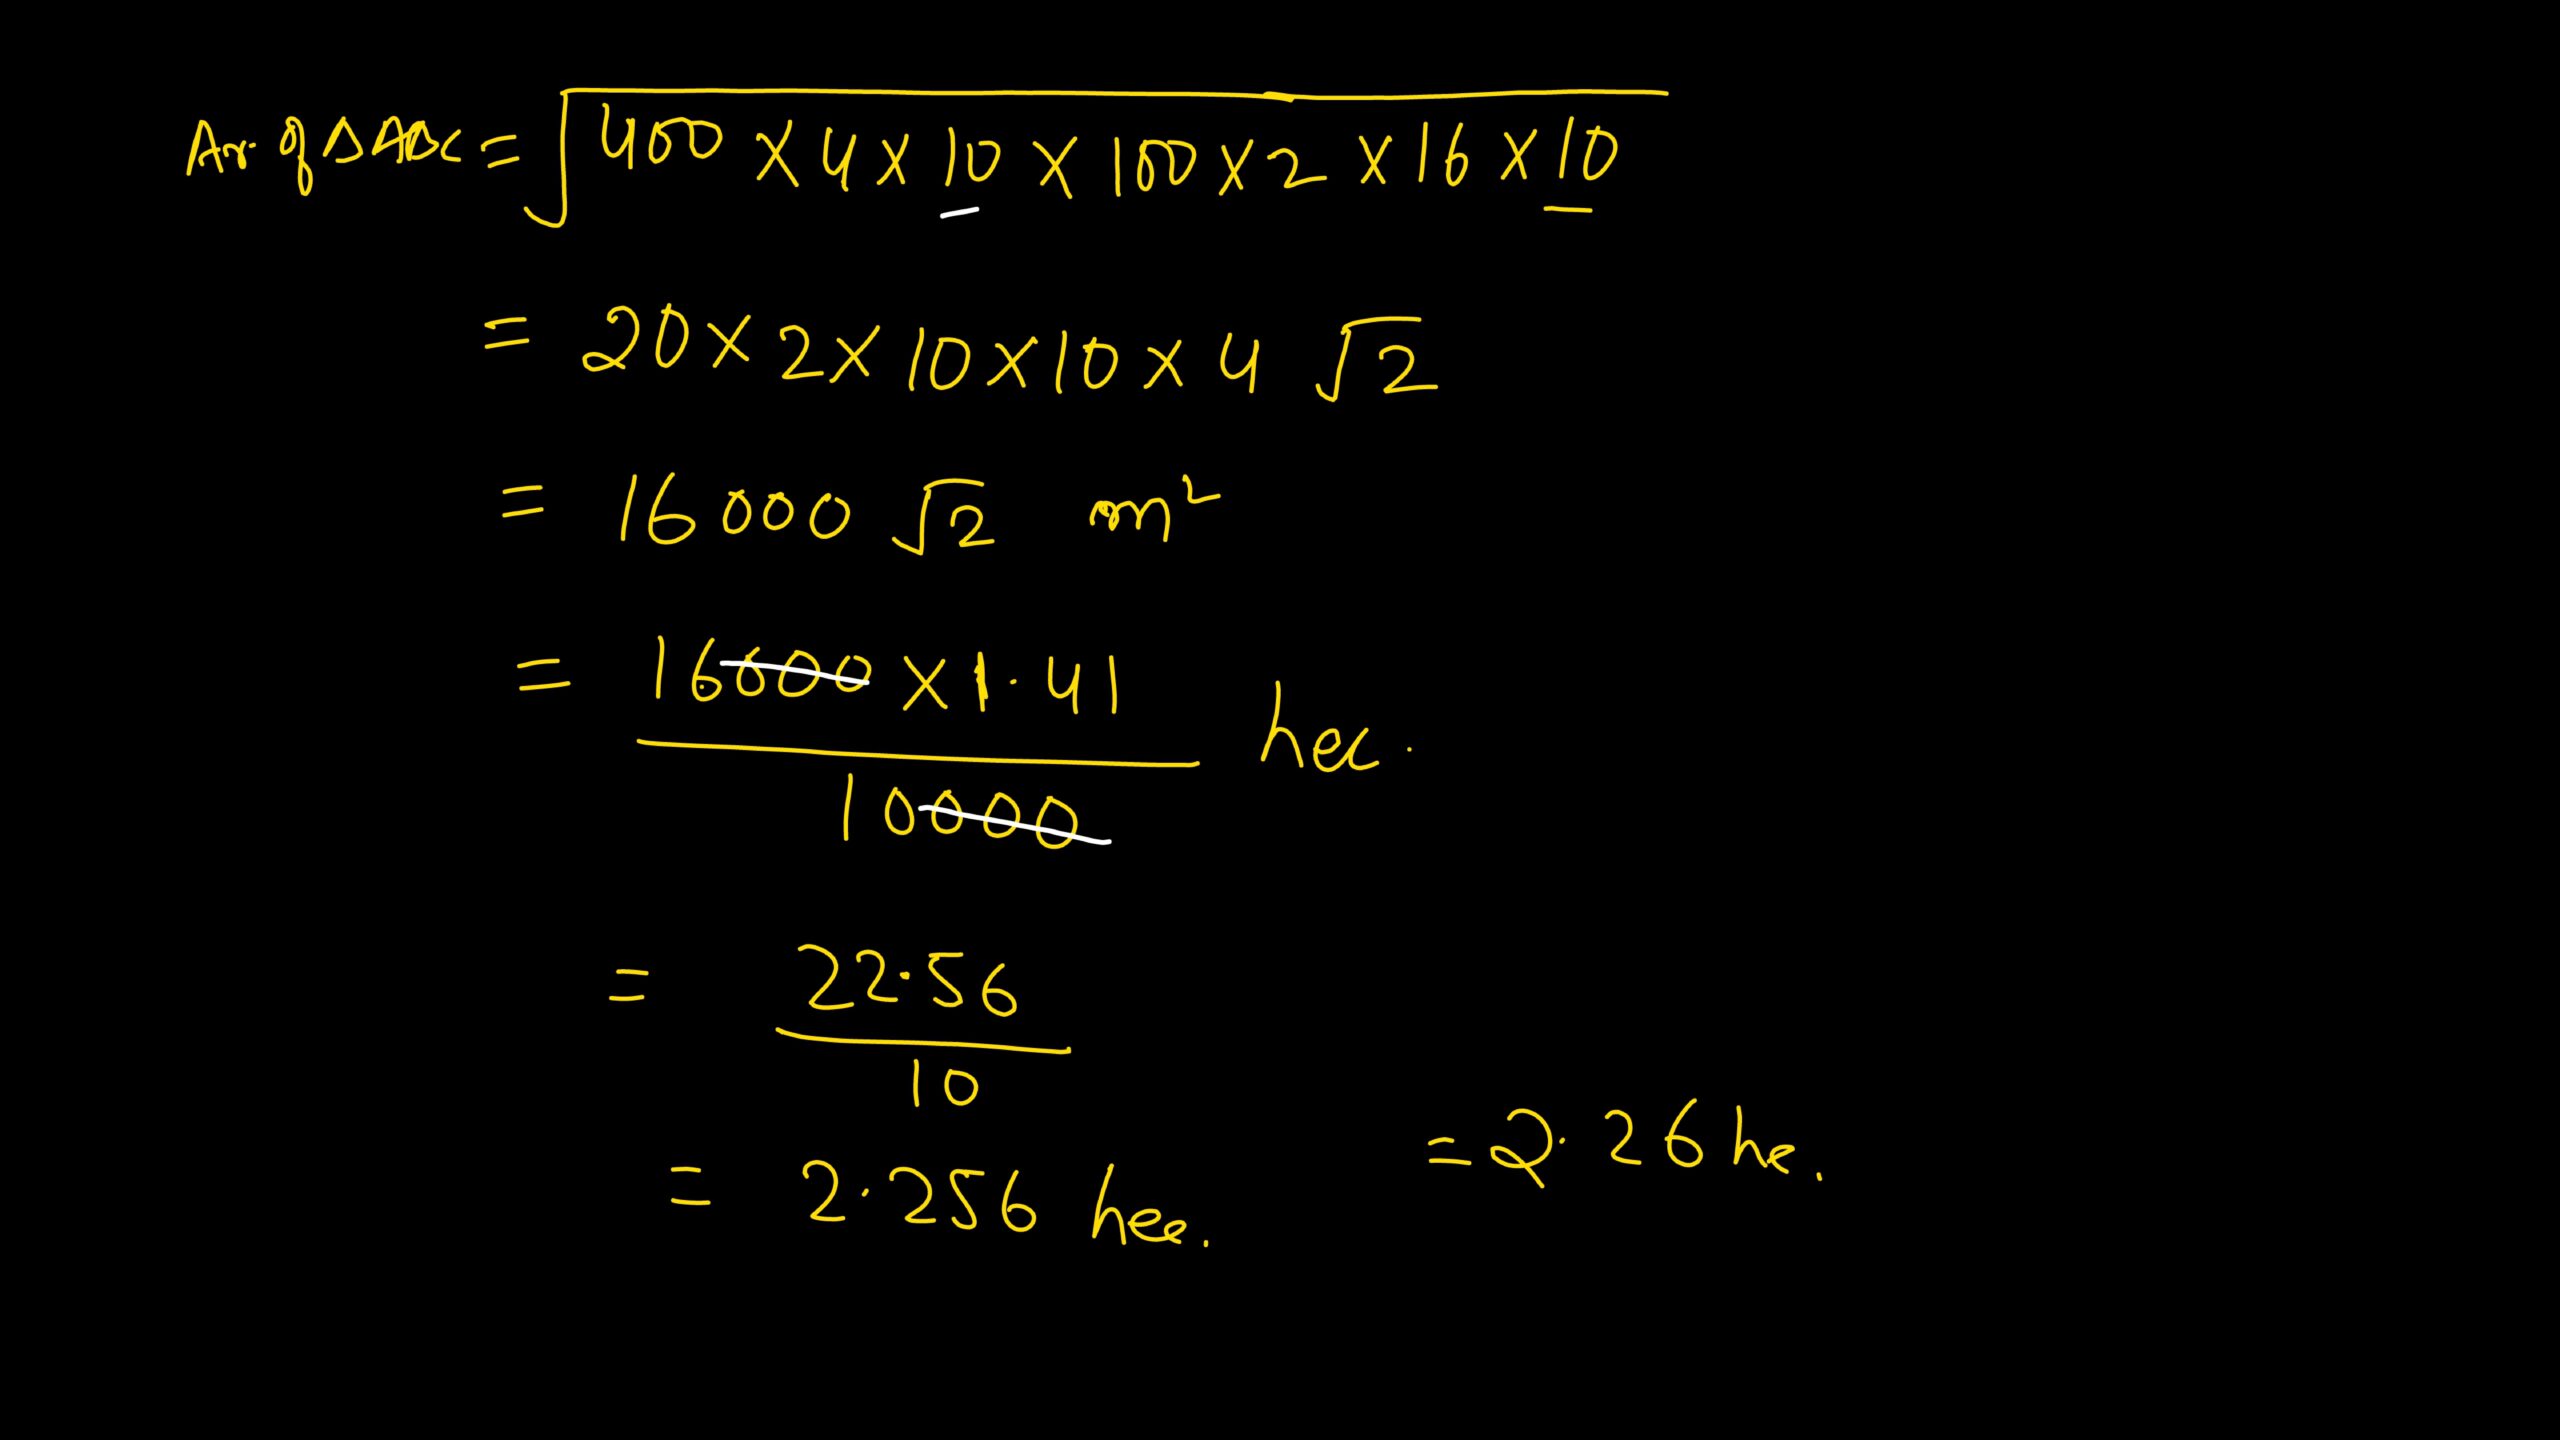 Ar. of Δ ABC = √400 × 4 × 10 × 100 × 2 × 16 × 10
= 20 × 2 × 10 × 10 × 4 √2
= 16000 √2 m²
= 16000 × 1.41 / 10000 hec.
= 22.56 / 10
= 2.256 hec. = 2.26 he.